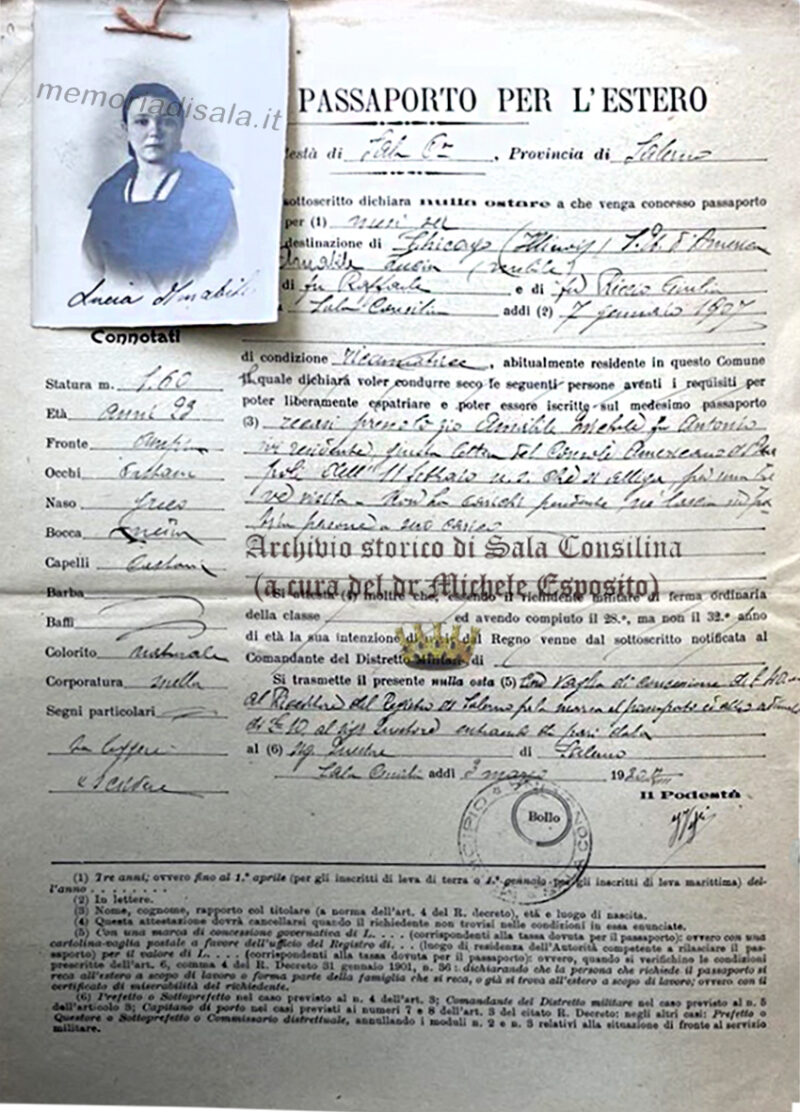 memoriadisala.it
PASSAPORTO PER L'ESTERO
Lucia Amabile
està di Sala Cna, Provincia di Salerno
sottoscritto dichiara nulla ostare a che venga concesso passaporto
per (1) mesi sei
destinazione di Chicago (Illinois) S. U. d'America
Amabile Lucia (nubile)
di fu Raffaele e di fu Riccio
Sala Consilina addì (2) 7 gennaio 1907
Connotati
di condizione ricamatrice, abitualmente residente in questo Comune
Il quale dichiara voler condurre seco le seguenti persone aventi i requisiti per
poter liberamente espatriare e poter essere iscritte sul medesimo passaporto
(3) recarsi presso lo zio Amabile Michele fu Antonio
ivi residente, giusta lettera del Console Americano di Na
poli dell' 11 febbraio che si allega, per una bre
ve visita - Non ha carichi pendenti, né lascia in Pa
tria persone a suo carico
Statura m. 1.60
Età anni 23
Fronte ampia
Occhi castani
Naso greco
Bocca media
Capelli castani
Barba
Baffi
Colorito naturale
Corporatura snella
Segni particolari
sa leggere
e scrivere
Archivio storico di Sala Consilina
(a cura del dr Michele Esposito)
Si attesta (4) inoltre che, essendo il richiedente militare di ferma ordinaria
della classe ed avendo compiuto il 28.º, ma non il 32.º anno
di età la sua intenzione di uscir dal Regno venne dal sottoscritto notificata al
Comandante del Distretto Militare di
Si trasmette il presente nulla osta (5) con vaglia di concessione di
al Ricevitore del Registro di Salerno per la marca al passaporto ed altro
di £ 10 al sigr Questore entrambi di pari data
al (6) Sig. Questore di Salerno
Sala Consilina addì 3 marzo 1930
Il Podestà
Bollo
(1) Tre anni; ovvero fino al 1.º aprile (per gli inscritti di leva di terra o 1.º gennaio per gli inscritti di leva marittima) del-
l'anno . . . . . . . .
(2) In lettere.
(3) Nome, cognome, rapporto col titolare (a norma dell'art. 4 del R. decreto), età e luogo di nascita.
(4) Questa attestazione dovrà cancellarsi quando il richiedente non trovisi nelle condizioni in essa enunciate.
(5) Con una marca di concessione governatica di L. . . (corrispondenti alla tassa dovuta per il passaporto): ovvero con una
cartolina-vaglia postale a favore dell'ufficio del Registro di. . . (luogo di residenza dell'Autorità competente a rilasciare il pas-
saporto) per il valore di L. . . . (corrispondenti alla tassa dovuta per il passaporto): ovvero, quando si verifichino le condizioni
prescritte dell'art. 6, comma 4 del R. Decreto 31 gennaio 1901, n. 36: dichiarando che la persona che richiede il passaporto si
reca all'estero a scopo di lavoro o forma parte della famiglia che si reca, o già si trova all'estero a scopo di lavoro; ovvero con il
certificato di miserabilità del richiedente.
(6) Prefetto o Sottoprefetto nel caso previsto al n. 4 dell'art. 3; Comandante del Distretto militare nel caso previsto al n. 5
dell'articolo 3; Capitano di porto nei casi previsti ai numeri 7 e 8 dell'art. 3 del citato R. Decreto: negli altri casi: Prefetto o
Questore o Sottoprefetto o Commissario distrettuale, annullando i moduli n. 2 e n. 3 relativi alla situazione di fronte al servizio
militare.